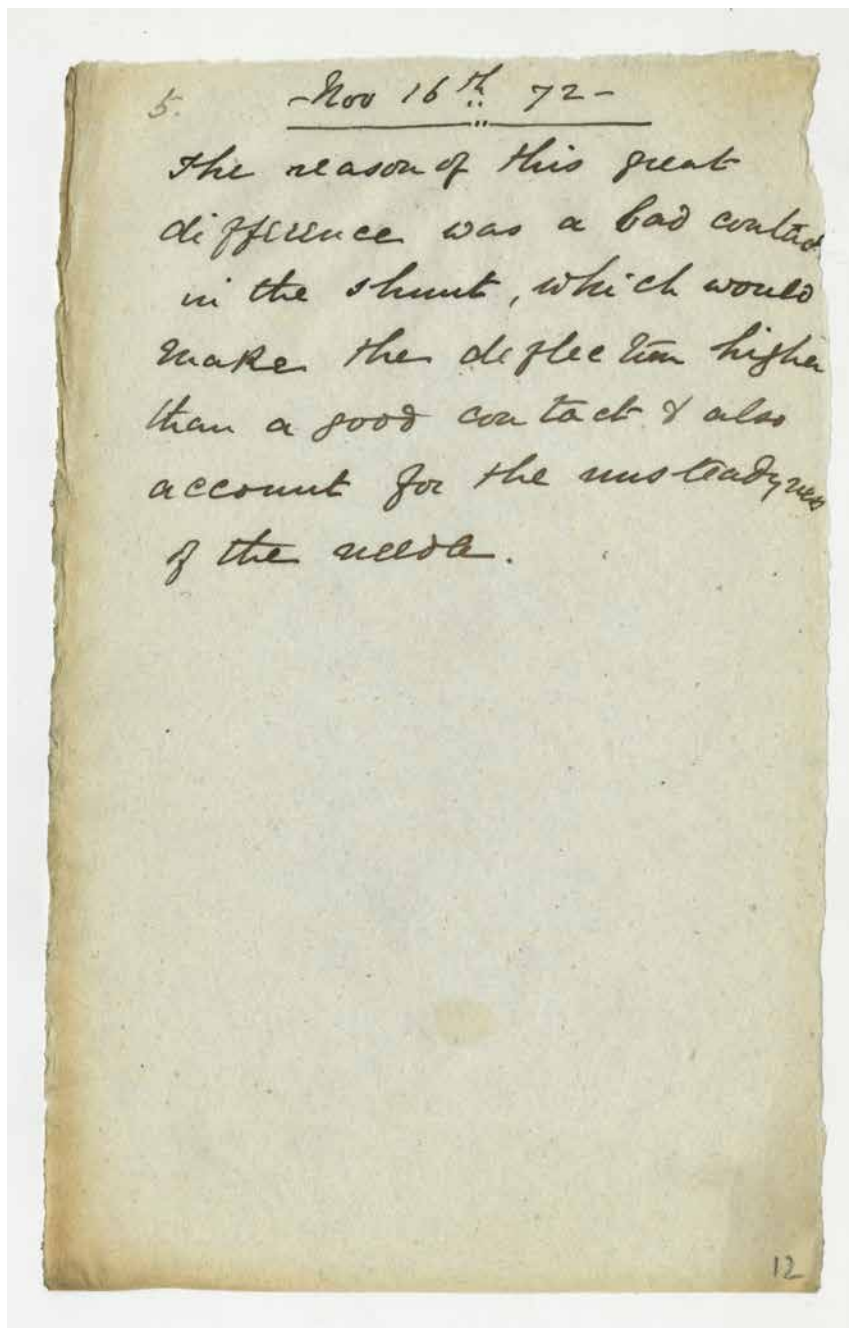 5.
- Nov 16th 72 -
The reason of this great
difference was a bad contact
in the shunt, which would
make the deflection higher
than a good contact & also
account for the unsteadyness
of the needle.
12